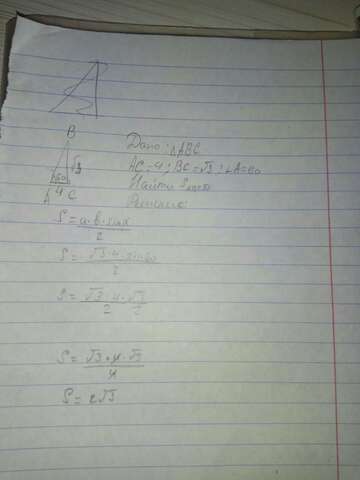 B
Дано: △ABC
AC = 4; BC = √3; ∠A = 60
√3
60
Найти
4
A C
Решение
S = a · b · sin α / 2
S = √3 · 4 · sin 60 / 2
S = √3 · 4 · √3 / 2 2
S = √3 · 4 · √3 / 4
S = 2√3